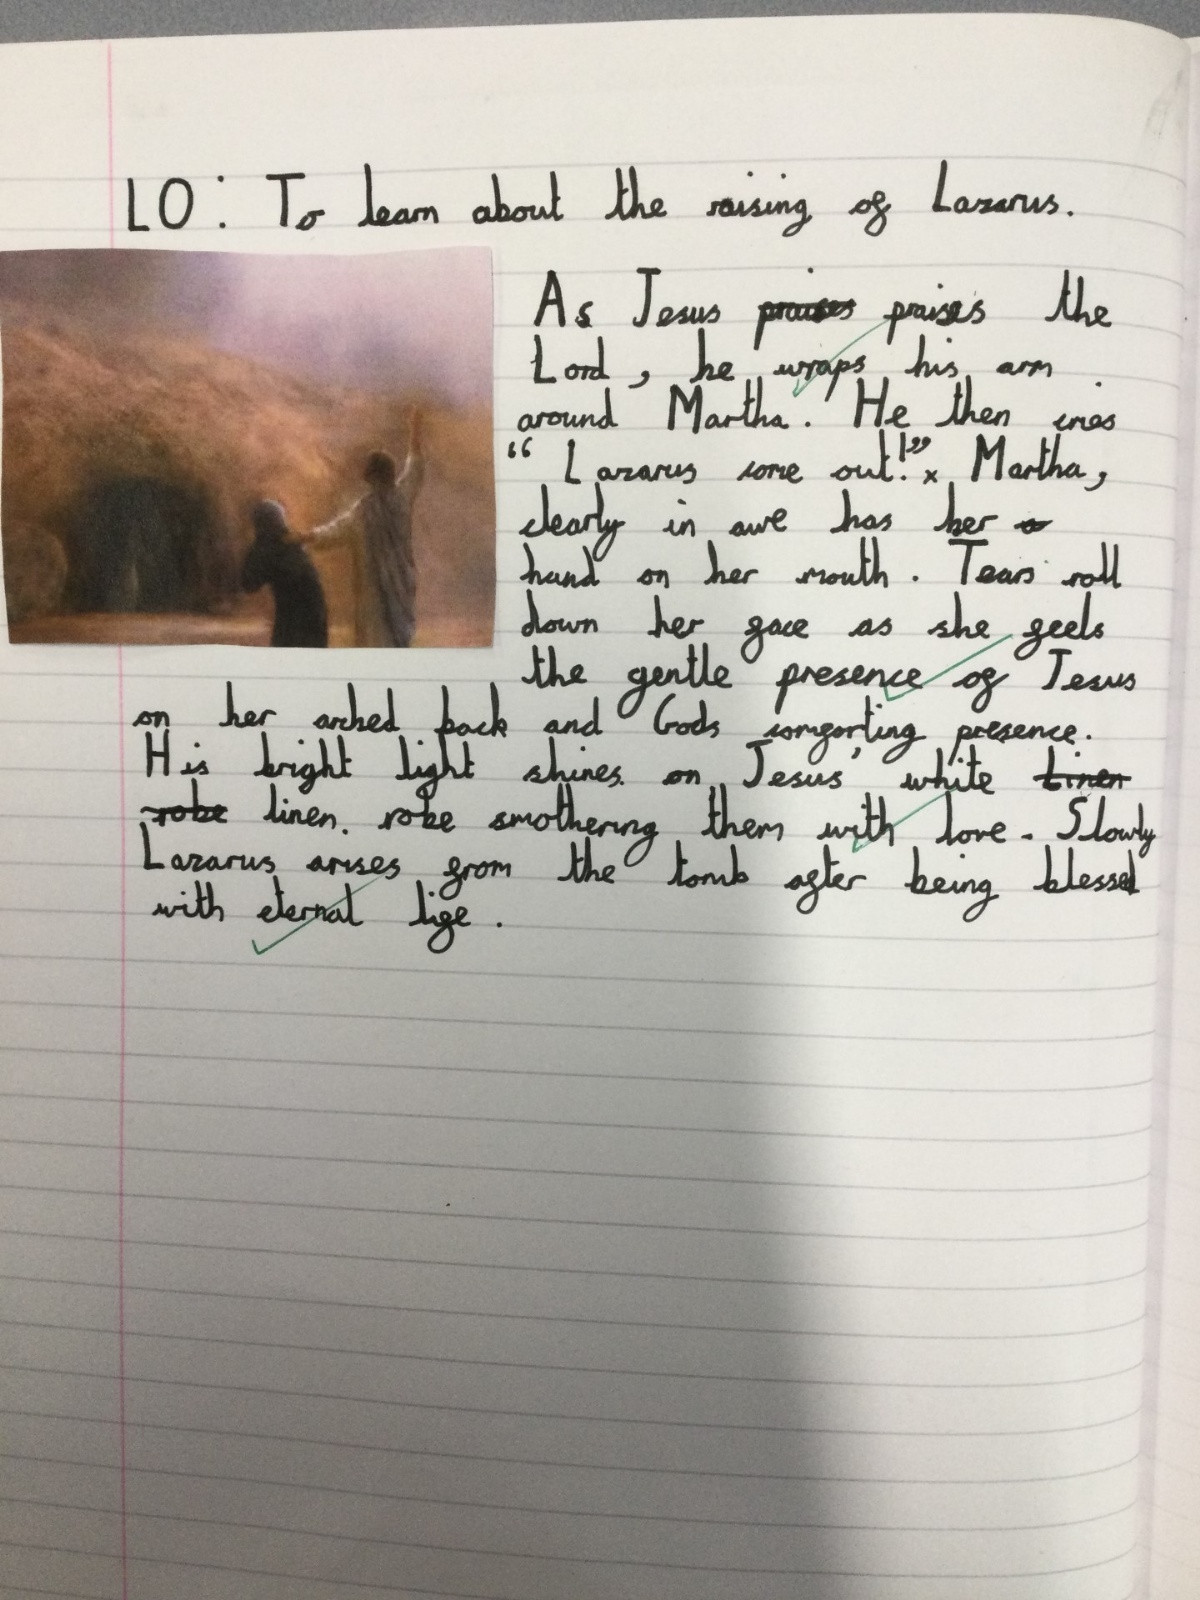 LO: To learn about the raising of Lazarus.
As Jesus praises praises the
Lord, he wraps his arm
around Martha. He then cries
“Lazarus come out!” x Martha,
clearly in awe has her
hand on her mouth. Tears roll
down her face as she feels
the gentle presence of Jesus
on her arched back and Gods comforting presence.
His bright light shines on Jesus' white Linen
robe linen robe smothering them with love. Slowly
Lazarus arises from the tomb after being blessed
with eternal life.